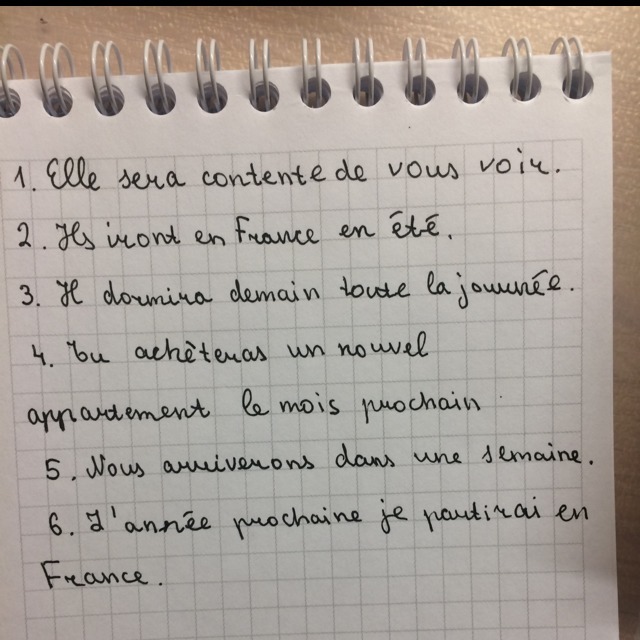 1. Elle sera contente de vous voir.
2. Ils iront en France en été.
3. Il dormira demain toute la journée.
4. Tu achèteras un nouvel
appartement le mois prochain
5. Nous arriverons dans une semaine.
6. L'année prochaine je partirai en
France.